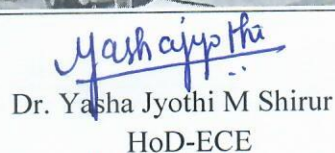 Yashajyothi
Dr. Yasha Jyothi M Shirur
HoD-ECE